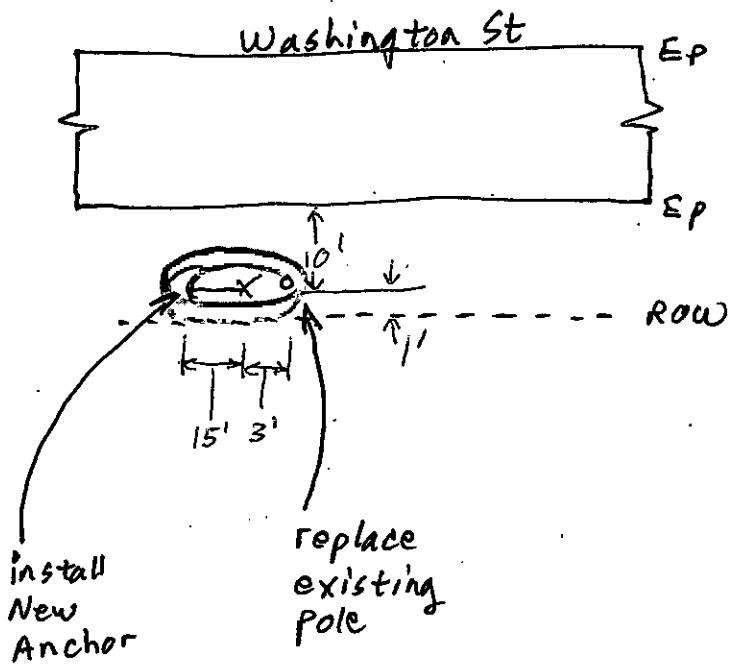 Washington St
Ep
Ep
10'
ROW
1'
15' 3'
install
New
Anchor
replace
existing
pole